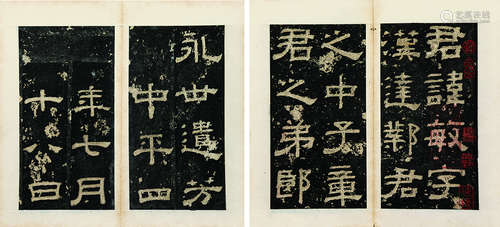 君諱敏字
漢達鄴君
之中子章
君之弟郎
永世遺芳
中平四
年七月
十八日